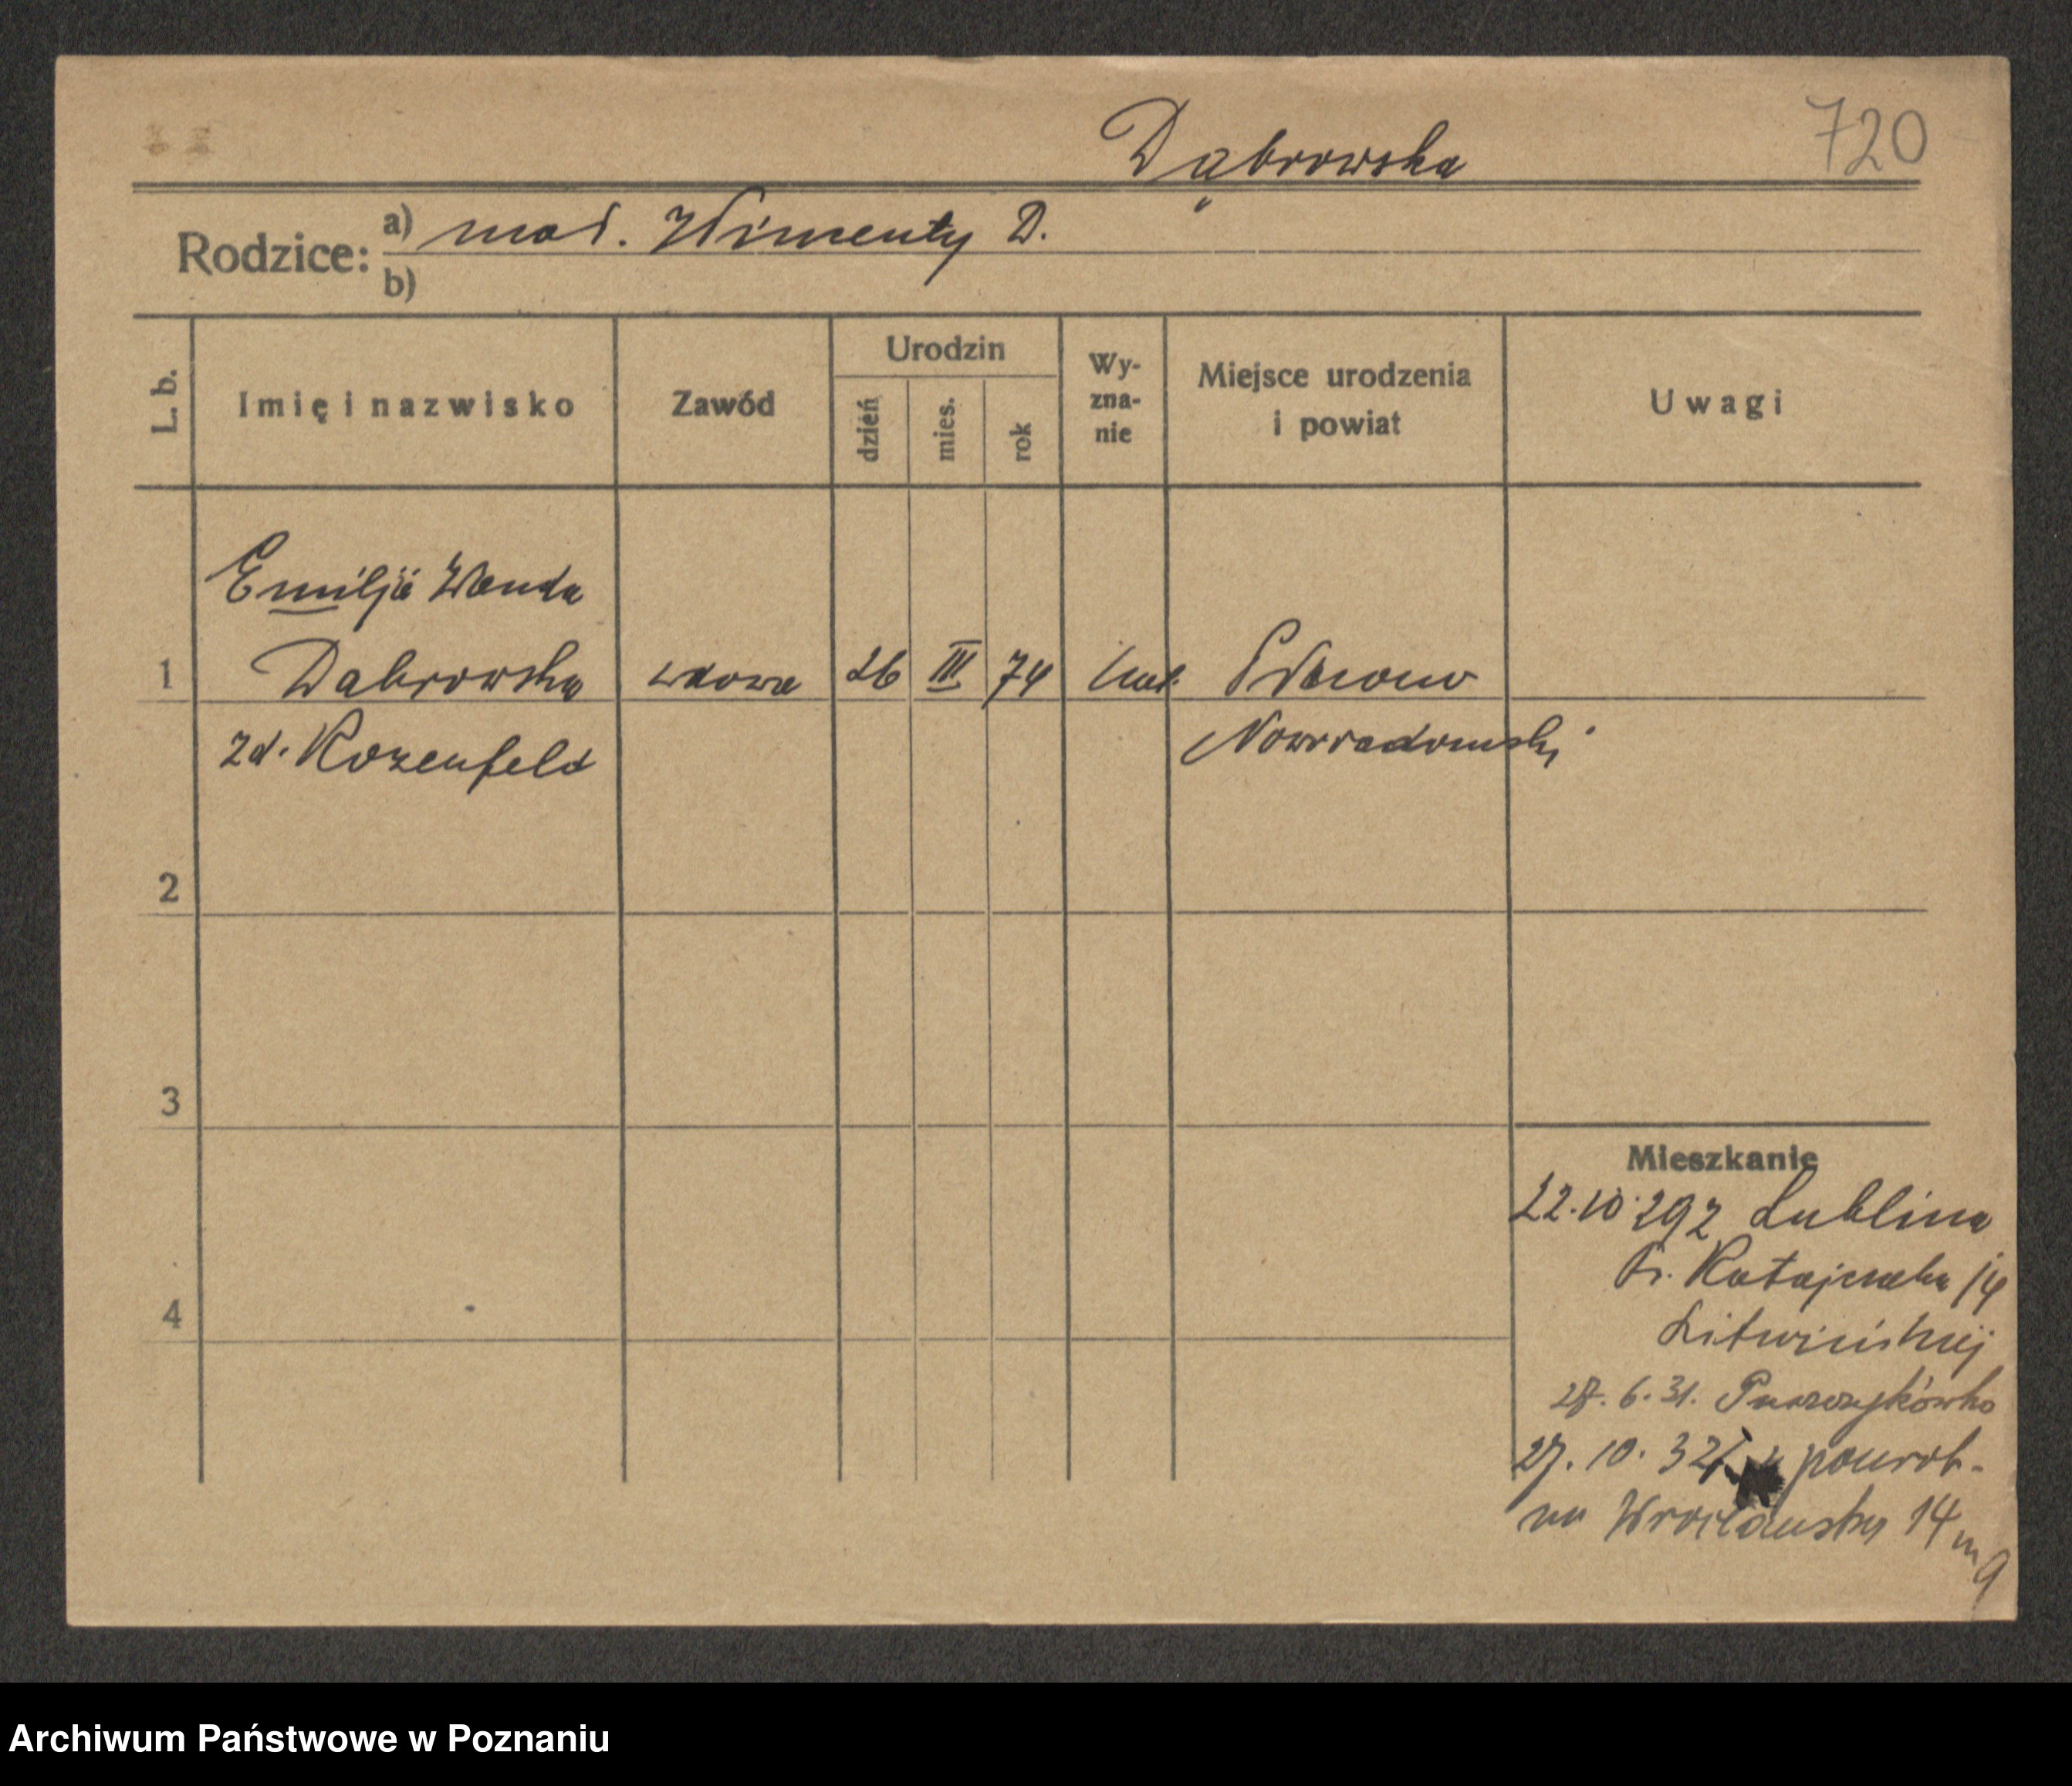 Dąbrowska
720
Rodzice: a) mał. Wincenty D.
b)
L. b.
Imię i nazwisko
Zawód
Urodzin
dzień
mies.
rok
Wy-
zna-
nie
Miejsce urodzenia
i powiat
Uwagi
Emilja Wanda
1 Dąbrowska wdowa 26 III 74
zd. Rozenfeld Noworadomski
2
3
4
Mieszkanie
22.10.29 z Lublina
Fr. Ratajczaka 14
Litwińskiej
27. 6. 31. Puszczykówko
27. 10. 32 powrót.
na Wrocławską 14 m 9
Archiwum Państwowe w Poznaniu